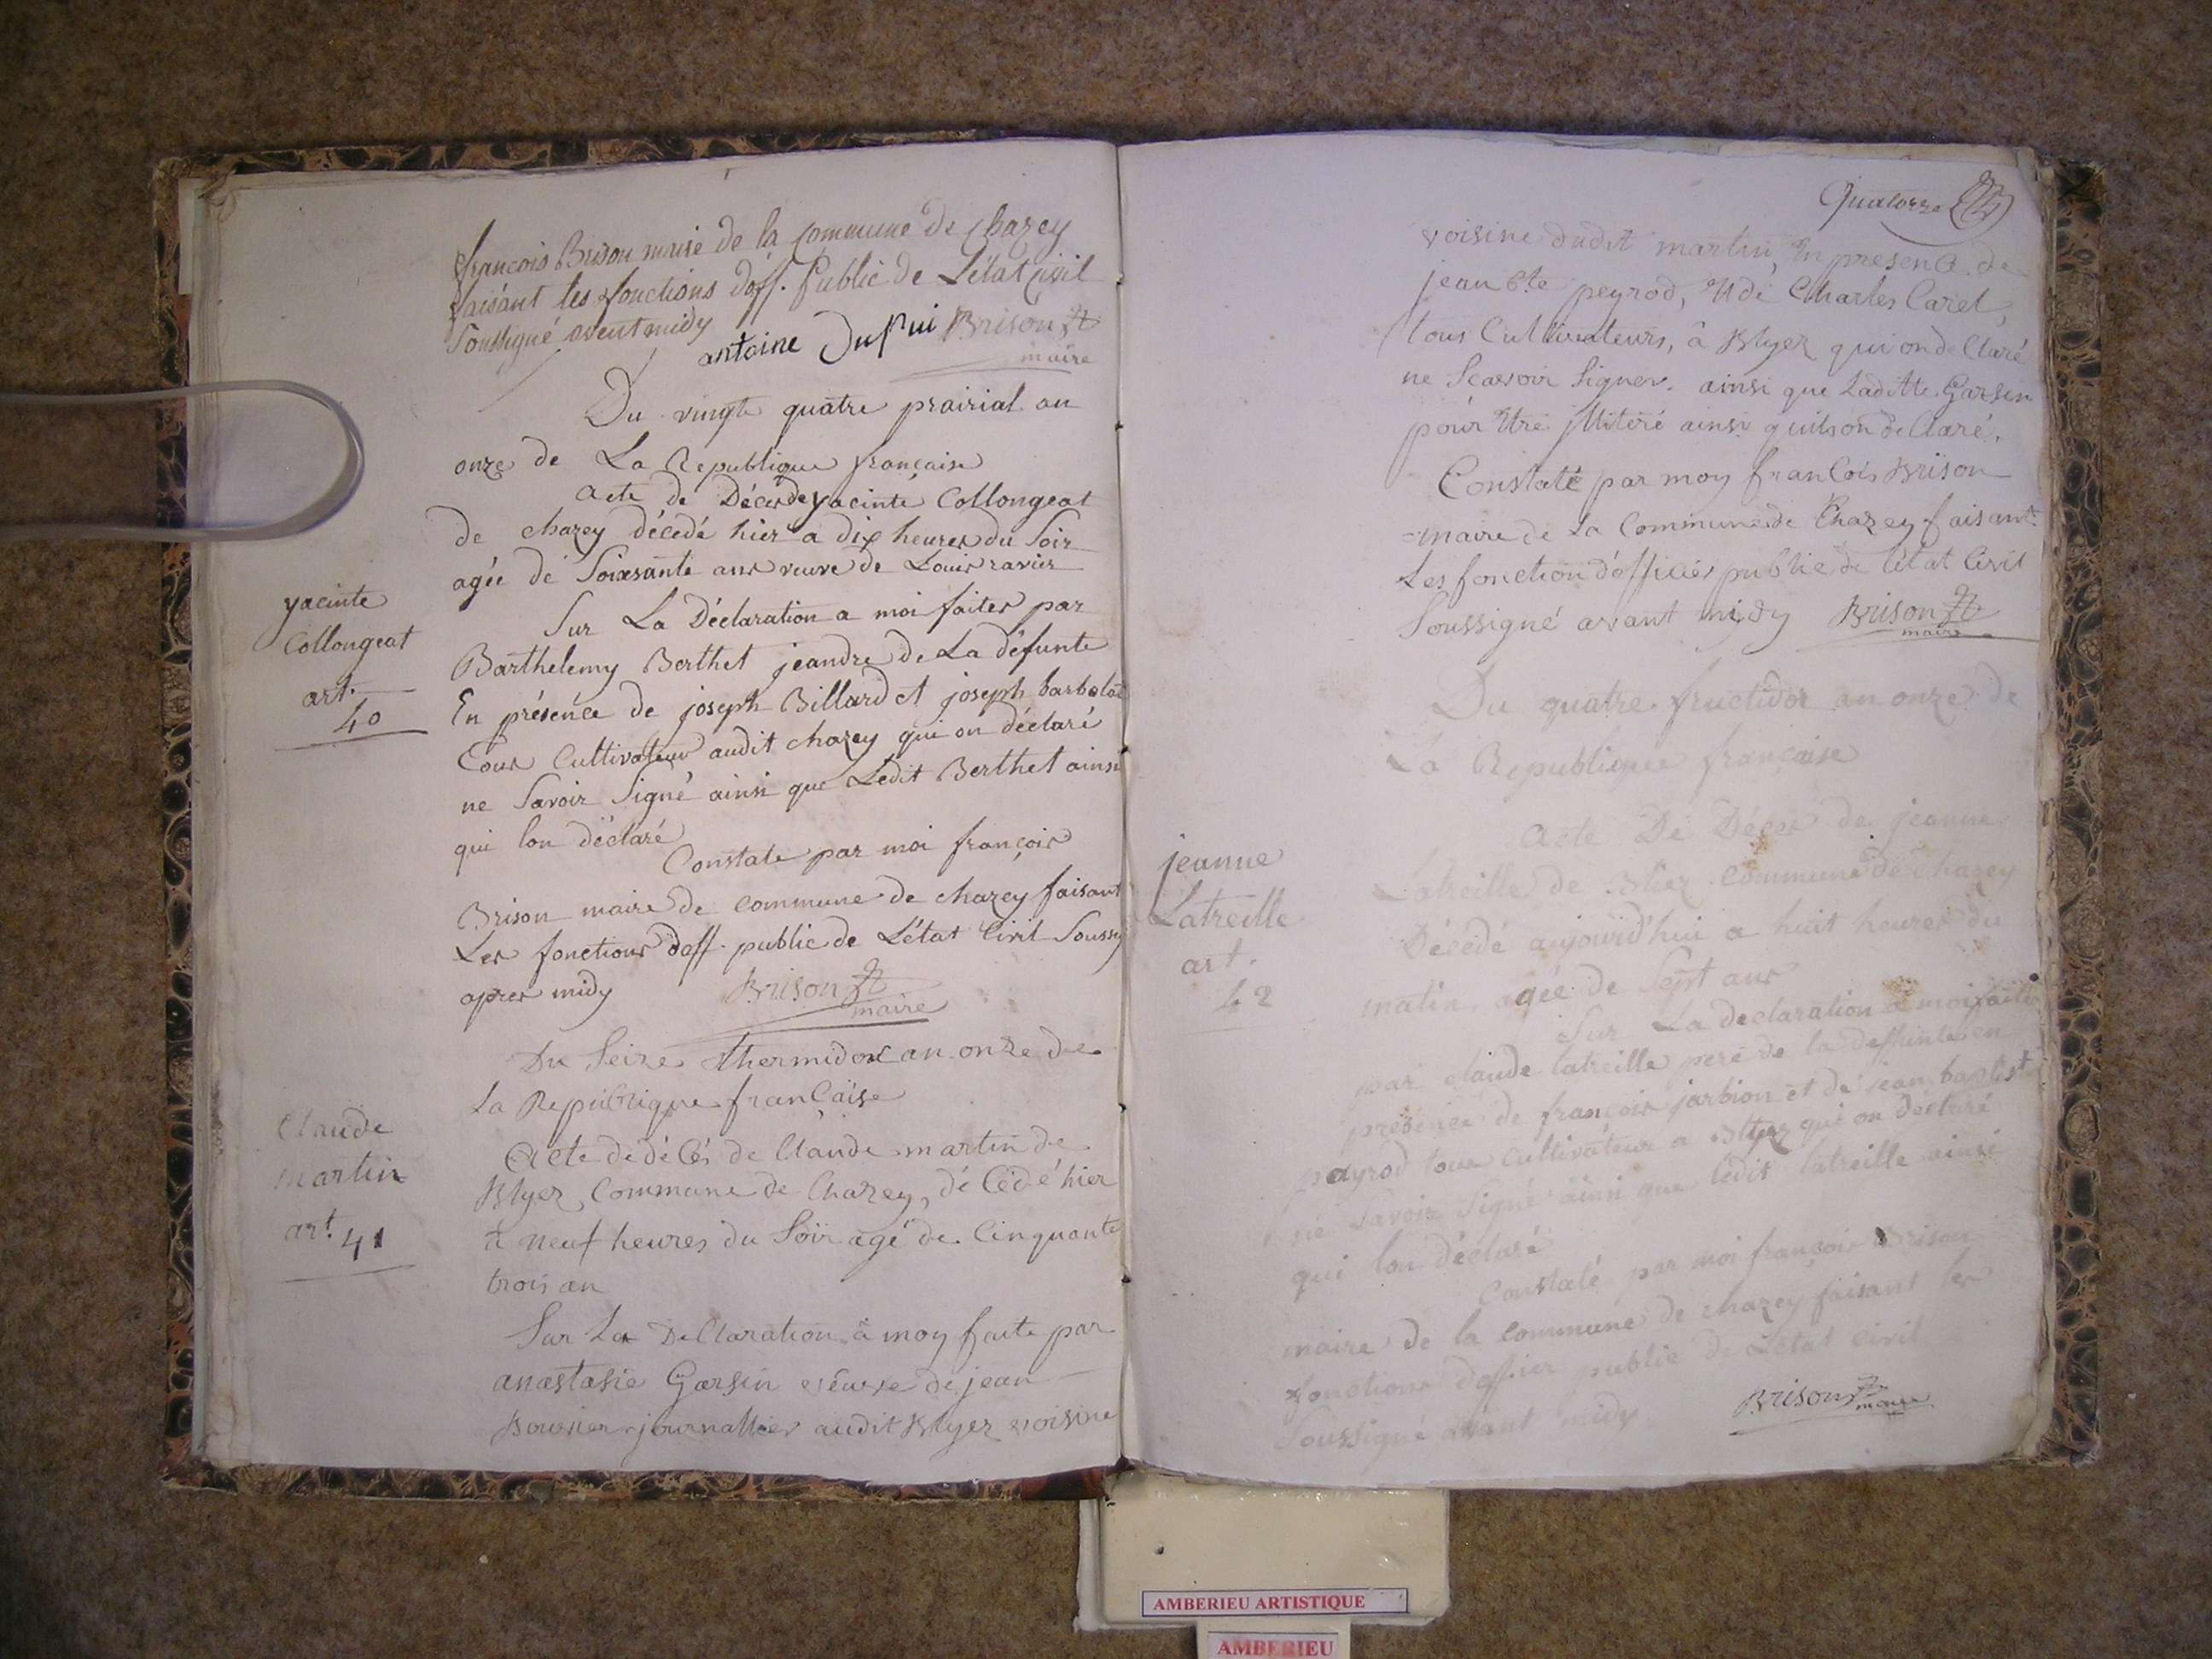 françois Brison maire de la Commune de chazey
faisant les fonctions d'off. Public de L'état Civil
Soussigné avent midy
antoine Dupui Brison
maire
Du vingte quatre prairial an
onze de La Republique française
acte de Décès de yacinte Collongeat
de chazey décedé hier a dix heures du Soir
agée de Soixsante ans veuve de Louis ravier
yacinte
Collongeat
art.
40
Sur La Déclaration a moi faites par
Barthelemy Berthet jeandre de La défunte
En présence de joseph Billard et joseph barbolat
Tous Cultivateur audit chazey qui on déclaré
ne Savoir Signé ainsi que Ledit Berthet ainsi
qui lon déclaré
Constate par moi françois
Brison maire de commune de chazey faisant
Les fonctions d'off. public de L'état Civil Soussig
apres midy Brison
maire
Du Seize thermidor an onze de
La Republique française
Claude
martin
art. 41
Acte de déCés de Claude martin de
Blyez Commune de Chazey, déCédé hier
à neuf heures du Soir agé de Cinquante
trois an
Sur La DeClaration à moy faite par
anastasie Garsin veuve de jean
Bouvier journallier audit Blyez voisine
Quatorze
voisine dudit martin, En presence de
jean Bte peyrod, Et de Charles Caret,
tous Cultivateurs, à Blyez qui on deClaré
ne Scavoir Signer. ainsi que Laditte Garsin
pour Etre illiteré ainsi quils on deClaré.
Constaté par moy franCois Brison
maire de La Commune de Chazey faisant
Les fonction d'officier public de l'état Civil
Soussigné avant midy Brison
maire
Du quatre fructidor an onze de
La Republique française
jeanne
Latreille
art.
42
Acte De Décé de jeanne
Latreille de Bliez Commune de Chazey
Décédé aujourd'hui a huit heures du
matin agée de Sept ans
Sur La declaration a moi faites
par claude latreille pere de la deffunte en
présence de françois jarbion et de jean baptiste
payrod tous cultivateur a Blyez qui on déclaré
ne Savoir Signé ainsi que ledit latreille ainsi
qui lon déclaré
Constaté par moi françois Brison
maire de la commune de chazey faisant les
fonctions d'offier public de L'état civil
Soussigné avant midy Brison
maire
AMBERIEU ARTISTIQUE
AMBERIEU